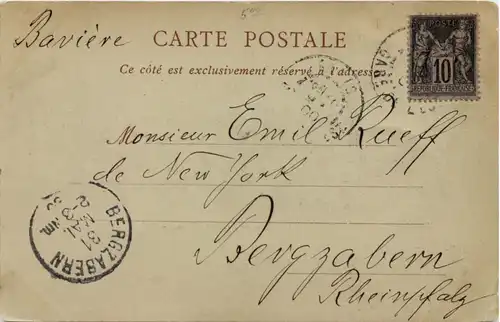 5.00
Bavière CARTE POSTALE
Ce côté est exclusivement réservé à l'adresse
POSTE
10
REPUBLIQUE FRANCAISE
Monsieur Emil Rueff
de New York
Bergzabern
Rheinpfalz
BERGZABERN
31
MAI
2-3